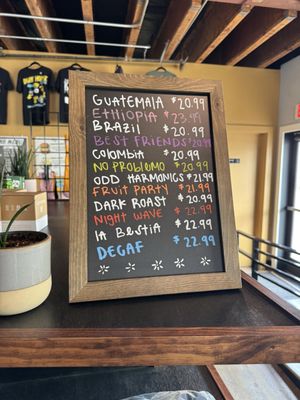 GUATEMALA $20.99
ETHIOPIA $23.99
BRAZIL $20.99
BEST FRIENDS $20.99
COLOMBIA $20.99
NO PROBLUMO $20.99
ODD HARMONICS $21.99
FRUIT PARTY $21.99
DARK ROAST $20.99
NIGHT WAVE $22.99
LA BESTIA $22.99
DECAF $22.99